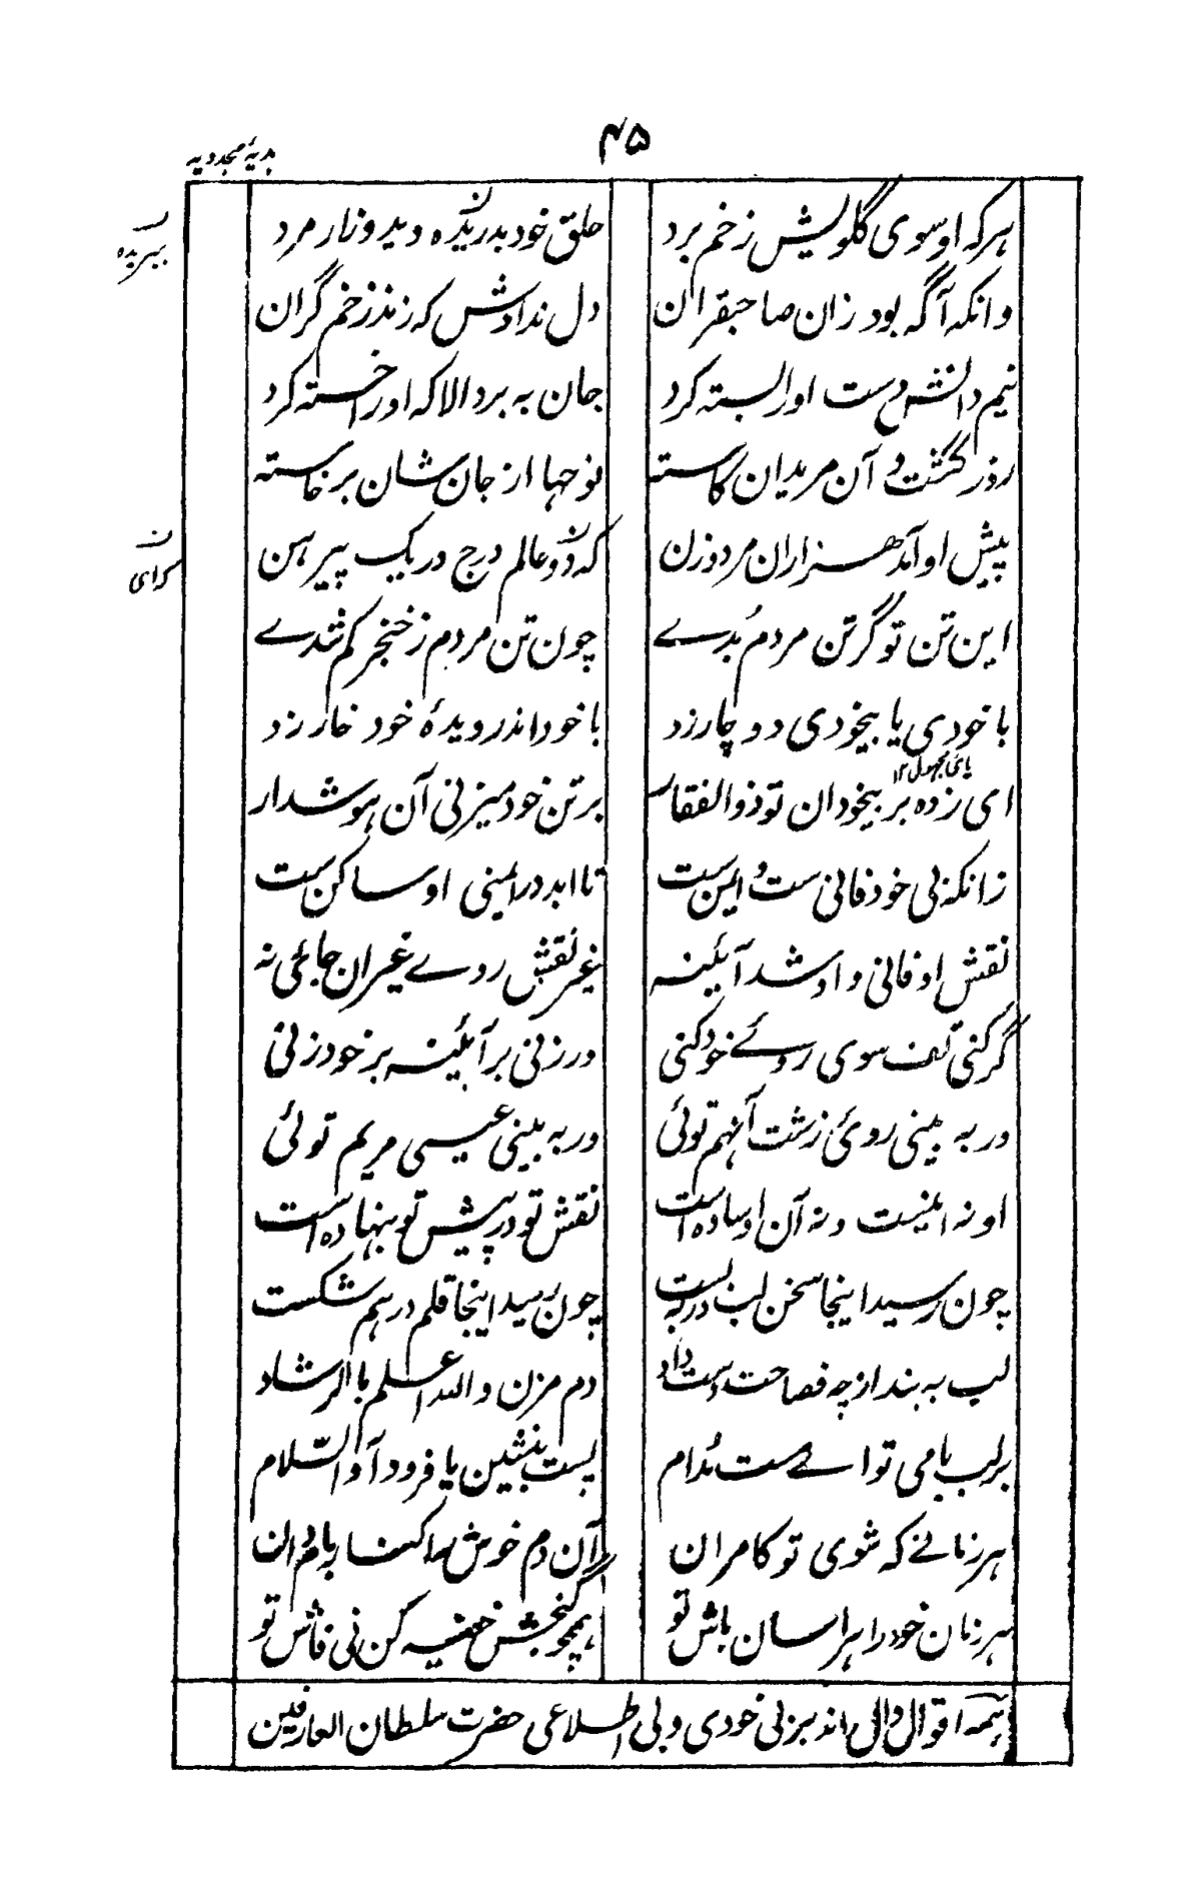 ۴۵
هدیهٔ مجددیه
هرکه او سوی گلویش زخم برد حلق خود بدریده دید و زار مرد
ببریده
وانکه آگه بود زان صاحبقران دل ندادش که زند زخم گران
نیم دانش دست او را بسته کرد جان به برد الا که او را خسته کرد
روز گشت و آن مریدان کاسته نوحها از جان شان برخاسته
پیش او آمد هزاران مرد و زن که دو عالم درج در یک پیرهن
کای
این تن تو گر تن مردم بُدے چون تن مردم ز خنجر کم شدے
با خودی یا بیخودی دو چار زد با خود اندر دیدهٔ خود خار زد
یای مجهول ۱۲
ای زده بر بیخودان تو ذوالفقار بر تن خود میزنی آن هوشدار
زانکه بی خود فانی ست و ایمن ست تا ابد در ایمنی او ساکن ست
نقش او فانی و او شد آئینه غیر نقش روے غیر آن جائی نه
گر کنی تف سوی روئے خود کنی ور زنی بر آئینه بر خود زنی
ور به بینی روئ زشت آنهم توئی ور به بینی عیسی مریم توئی
او نه اینست و نه آن او ساده است نقش تو در پیش تو بنهاده است
چون رسید اینجا سخن لب در به بست چون رسید اینجا قلم درهم شکست
لب به بند ار چه فصاحت دست داد دم مزن والله اعلم باالرشاد
بر لب بامی تو اے مست مُدام پست بنشین یا فرود آ والسّلام
هر زمانے که شوی تو کامران آن دم خوش را کنار بام دان
هر زمان خود را هراسان باش تو همچو گنجش خفیه کن نی فاش تو
اینهمه اقوال دال اند بر بی خودی و بی اطلاعی حضرت سلطان العارفین